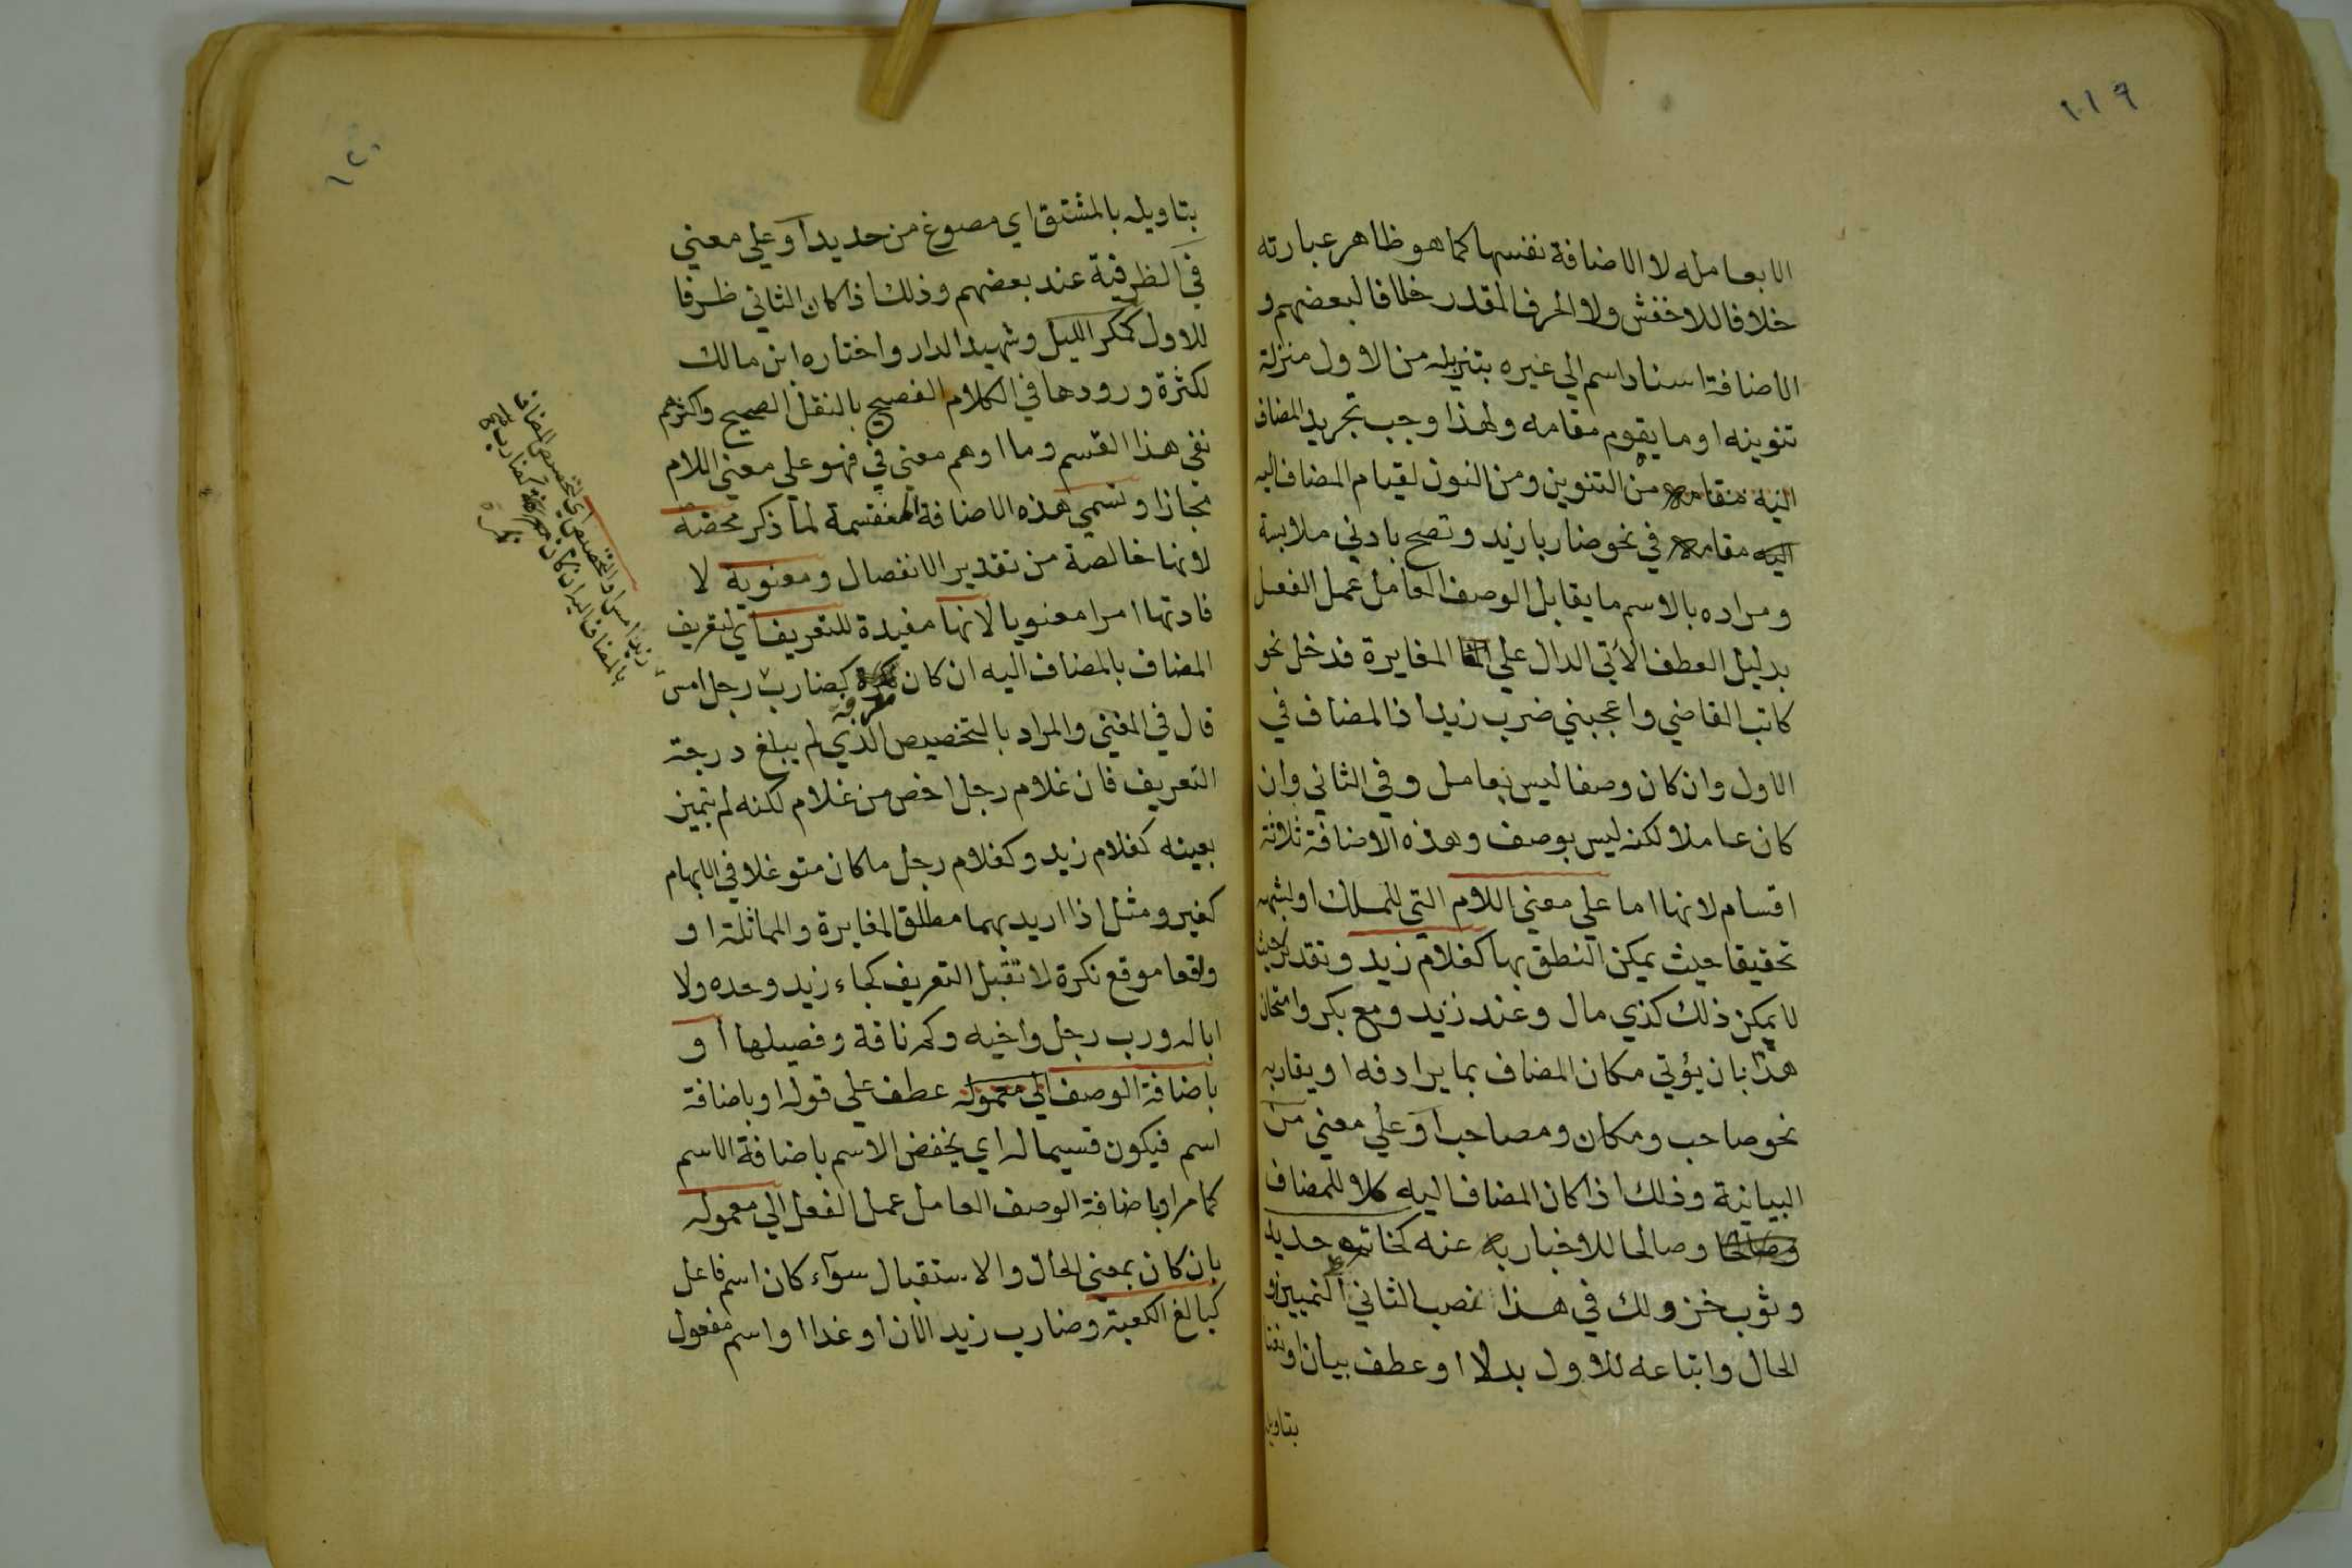 ١١٩
الا بعامله لا الاضافة نفسها كما هو ظاهر عبارته
خلافا للاخفش ولا الحرف المقدر خلافا لبعضهم و
الاضافة اسناد اسم الي غيره بتنزيله من الاول منزلة
تنوينه او ما يقوم مقامه ولهذا وجب تجريد المضاف
من التنوين ومن النون لقيام المضاف اليه
مقامه في نحو ضاربا زيد وتصح بادني ملابسة
ومراده بالاسم ما يقابل الوصف العامل عمل الفعل
بدليل العطف الآتي الدال علي المغايرة فدخل نحو
كاتب القاضي واعجبني ضرب زيد اذ المضاف في
الاول وان كان وصفا ليس بعامل وفي الثاني وان
كان عاملا لكنه ليس بوصف وهذه الاضافة ثلاثة
اقسام لانها اما علي معني اللام التي للملك او شبهه
تحقيقا حيث يمكن النطق بها كغلام زيد وتقديرا حيث
لا يمكن ذلك كذي مال وعند زيد ومع بكر وامتحان
هذا بان يؤتي مكان المضاف بما يرادفه او يقاربه
نحو صاحب ومكان ومصاحب او علي معني من
البيانية وذلك اذا كان المضاف اليه كلا للمضاف
وصالحا للاخبار به عنه كخاتم حديد
وثوب خز ولك في هذا نصب الثاني علي التمييز او
الحال واتباعه للاول بدلا او عطف بيان او نعتا
بتاويله
١٢٠
بتاويله بالمشتق اي مصوغ من حديد او علي معني
في الظرفية عند بعضهم وذلك اذا كان الثاني ظرفا
للاول كمكر الليل وشهيد الدار واختاره ابن مالك
لكثرة ورودها في الكلام الفصيح بالنقل الصحيح واكثرهم
نفي هذا القسم وما اوهم معني في فهو علي معني اللام
مجازا وتسمي هذه الاضافة المنقسمة لما ذكر محضة
لانها خالصة من تقدير الانفصال ومعنوية لا
فادتها امرا معنويا لانها مفيدة للتعريف اي لتعريف
المضاف بالمضاف اليه ان كان معرفة كضارب رجل امس
قال في المغني والمراد بالتخصيص الذي لم يبلغ درجة
التعريف فان غلام رجل اخص من غلام لكنه لم يتميز
بعينه كغلام زيد وكغلام رجل ما كان متوغلا في الابهام
كغير ومثل اذا اريد بهما مطلق المغايرة والمماثلة او
واقعا موقع نكرة لا تقبل التعريف كجاء زيد وحده ولا
ابا له ورب رجل واخيه وكم ناقة وفصيلها او
باضافة الوصف الي معموله عطف علي قوله او باضافة
اسم فيكون قسيما له اي يخفض الاسم باضافة الاسم
كما مر او باضافة الوصف العامل عمل الفعل الي معموله
بان كان بمعني الحال والاستقبال سوآء كان اسم فاعل
كبالغ الكعبة وضارب زيد الان او غدا او اسم مفعول
زيد امس او التخصيص اي لتخصيص المضاف
بالمضاف اليه ان كان نكرة كضارب
نكرة